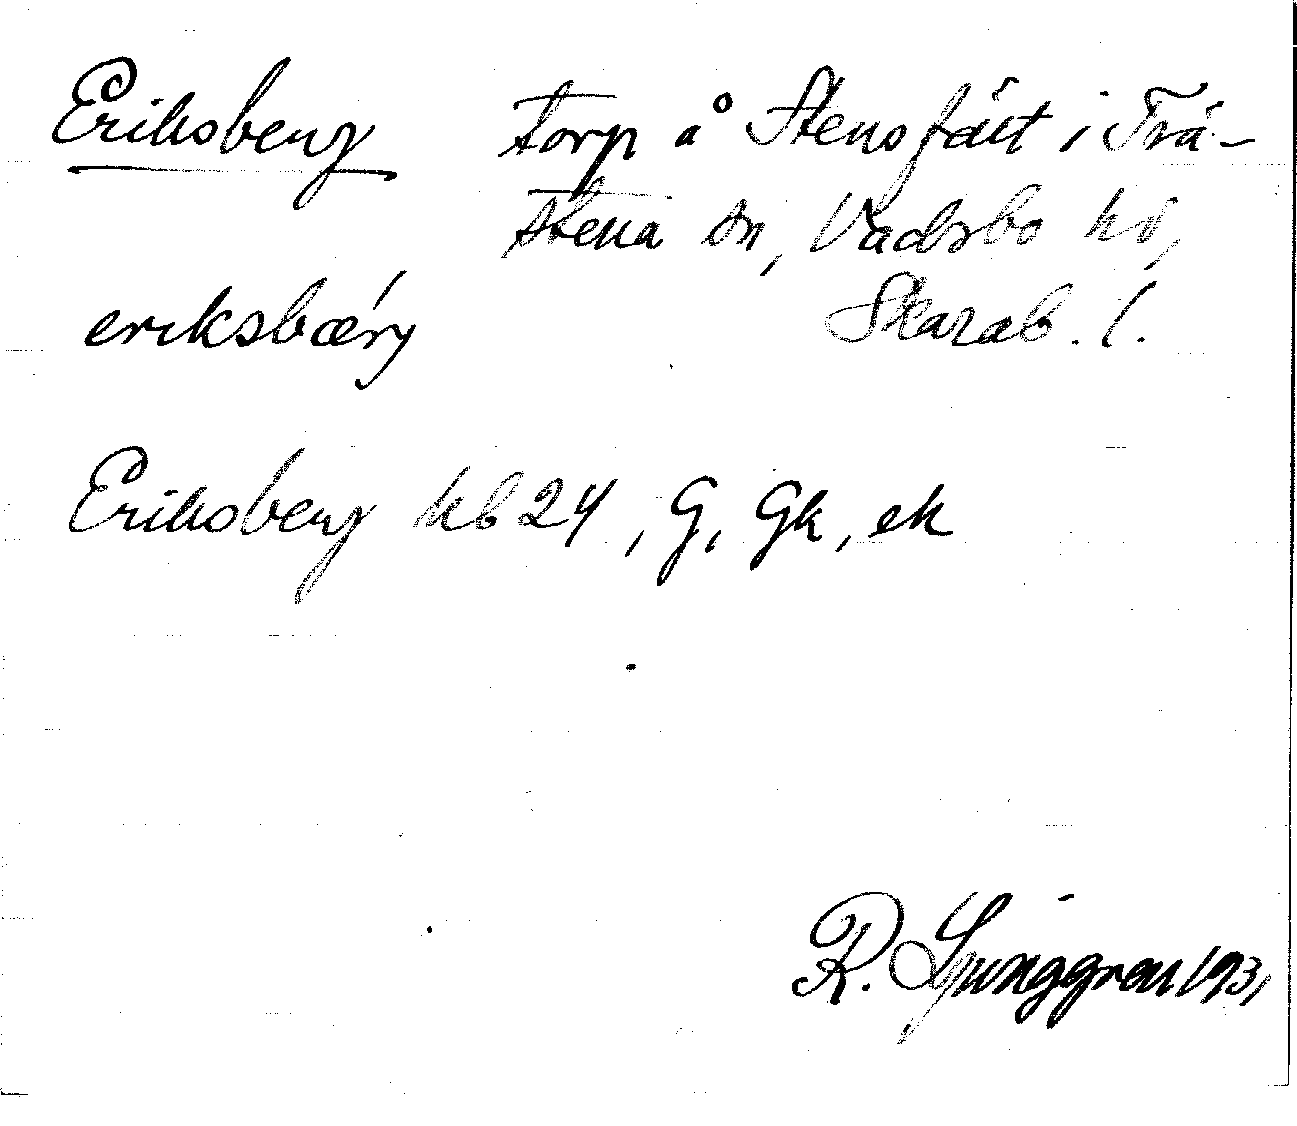 Eriksberg torp å Stensfält i Trä-
stena sn, Vadsbo hd,
eriksbæ´rj Skarab. l.
Eriksberg kb 24, G, Gk, ek
R. Ljunggren 1931